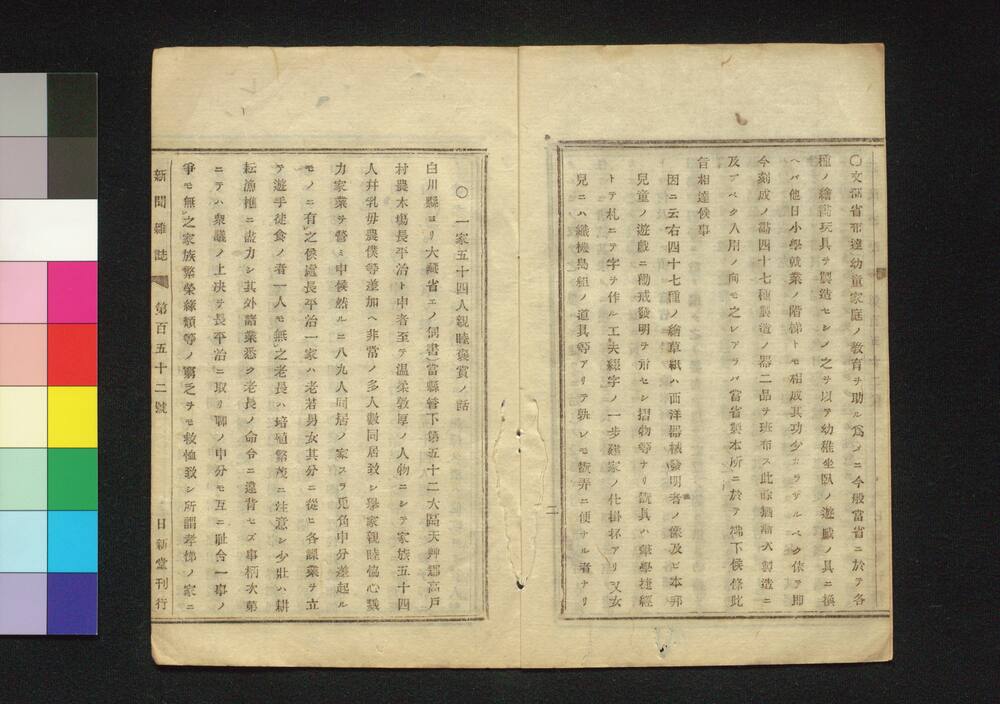 〇文部省布達幼童家庭ノ教育ヲ助ル爲メニ今般當省ニ於テ各
種ノ繪畫玩具ヲ製造セシメ之ヲ以テ幼稚坐臥ノ遊戲ノ具ニ換
ヘバ他日小學就業ノ階梯トモ相成其功少カラザルベク依テ即
今刻成ノ畵四十七種製造ノ器二品ヲ班布ス此餘猶漸次製造ニ
及ブベク人用ノ向モ之レアラバ當省製本所ニ於テ拂下候條此
旨相達候事
因ニ云右四十七種ノ繪草紙ハ西洋器械發明者ノ像及ビ本邦
兒童ノ遊戲ニ勸戒發明ヲ示セシ摺物等ナリ玩具ハ華學捷經
トテ札ニテ字ヲ作ル工夫綴字ノ一歩建家ノ仕掛杯アリ又女
兒ニハ織機島組ノ道具等アリテ孰レモ翫弄ニ便ナル者ナリ
二
〇一家五十四人親睦褒賞ノ話
白川縣ヨリ大藏省エノ伺書)當縣管下第五十二大區天艸郡高戸
村農木場長平治ト申者至テ温柔敦厚ノ人物ニシテ家族五十四
人幷乳母農僕等差加ヘ非常ノ多人數同居致シ擧家親睦協心戮
力家業ヲ營ミ申候然ルニ八九人同居ノ家スラ兎角申分差起ル
モノニ有之候處長平治一家ハ老若男女其分ニ從ヒ各課業ヲ立
テ遊手徒食ノ者一人モ無之老長ハ培殖繁茂ニ注意シ少壯ハ耕
耘漁樵ニ盡力シ其外諸業悉ク老長ノ命令ニ違背セズ事柄次第
ニテハ衆議ノ上决ヲ長平治ニ取リ聊ノ申分モ互ニ耻合一事ノ
爭モ無之家族繁榮縁類等ノ窮乏ヲモ救恤致シ所謂孝悌ノ家ニ
新聞雜誌 第百五十二號 日新堂刊行